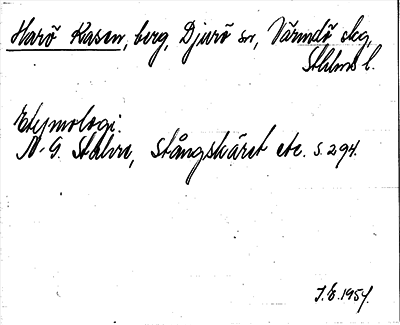 Harö Kasen, berg, Djurö sn, Värmdö skg,
Sthlms l.
Etymologi.
N.-G. Stahre, Stångskäret etc. s. 294.
J.E. 1954.